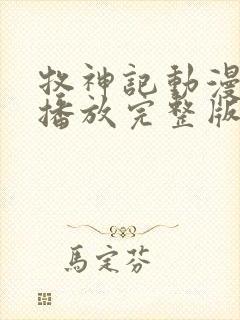 牧神記動漫
播放完整版
馬定芬